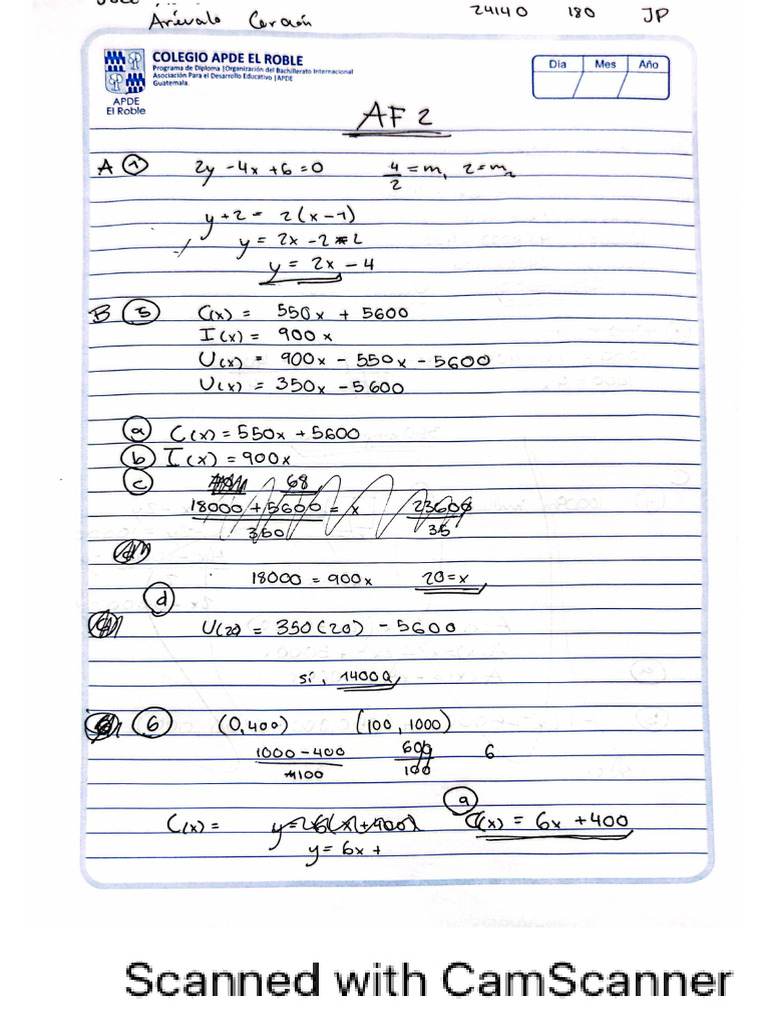 Arévalo Cerdón 24140 180 JP
COLEGIO APDE EL ROBLE
Programa de Diploma |Organización del Bachillerato Internacional
Asociación Para el Desarrollo Educativo |APDE
Guatemala.
APDE
El Roble
Dia Mes Año
AF 2
A 1 2y -4x +6 =0 4/2 = m, 2 = m2
y+2 = 2(x-1)
y = 2x -2 -2
y = 2x -4
B 5 C(x) = 550x + 5600
I(x) = 900x
U(x) = 900x - 550x - 5600
U(x) = 350x - 5600
a C(x) = 550x + 5600
b I(x) = 900x
c 68
18000 + 5600 / 350 = x 23600 / 35
18000 = 900x 20 = x
d
U(20) = 350(20) - 5600
sí, 1400Q
6 (0,400) (100, 1000)
1000 - 400 / 100 600 / 100 6
a
C(x) = C(x) = 6x + 400
y = 6x +
Scanned with CamScanner